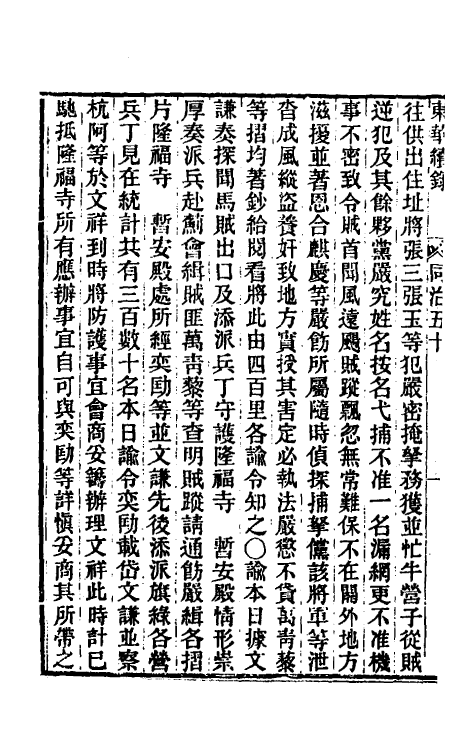 東華續錄 同治五十 一
往供出住址將張三張玉等犯嚴密掩拏務獲並忙牛營子從賊
逆犯及其餘夥黨嚴究姓名按名弋捕不准一名漏網更不准機
事不密致令賊首聞風遠颺賊蹤飄忽無常難保不在關外地方
滋擾並著恩合麒慶等嚴飭所屬隨時偵探捕拏儻該將軍等泄
沓成風縱盜養奸致地方實授其害定必執法嚴懲不貸萬靑藜
等摺均著鈔給閱看將此由四百里各諭令知之〇諭本日據文
謙奏探聞馬賊出口及添派兵丁守護隆福寺 暫安殿情形崇
厚奏派兵赴薊會緝賊匪萬靑藜等查明賊蹤請通飭嚴緝各摺
片隆福寺 暫安殿處所經奕劻等並文謙先後添派旗綠各營
兵丁見在統計共有三百數十名本日諭令奕劻載岱文謙並察
杭阿等於文祥到時將防護事宜會商妥籌辦理文祥此時計已
馳抵隆福寺所有應辦事宜自可與奕劻等詳愼妥商其所帶之